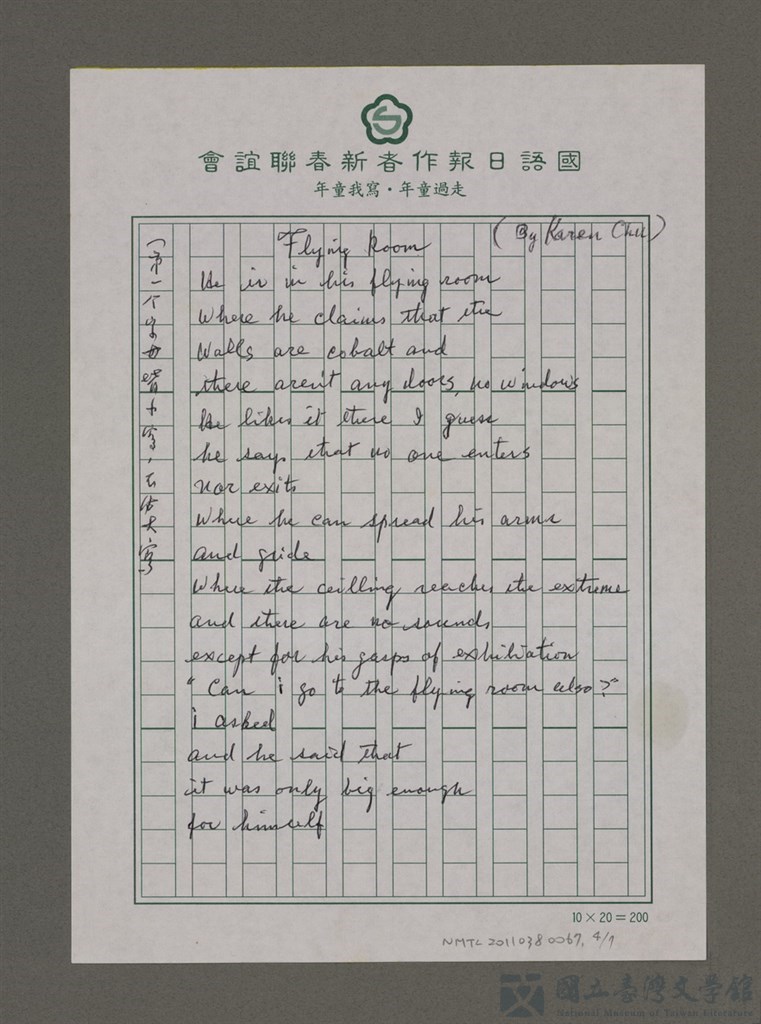 國語日報作者新春聯誼會
走過童年・寫我童年
(By Karen Chu)
Flying Room
He is in his flying room
Where he claims that the
Walls are cobalt and
there aren't any doors, no windows
He likes it there I guess
he says that no one enters
nor exits
Where he can spread his arms
and glide
Where the ceilling reaches the extreme
and there are no sounds
except for his gasps of exhiliation
"Can i go to the flying room also?"
i asked
and he said that
it was only big enough
for himself
(第一个字母皆小寫,不必大寫)
10×20=200
NMTL 20110380067, 4/7
國立臺灣文學館
National Museum of Taiwan Literature